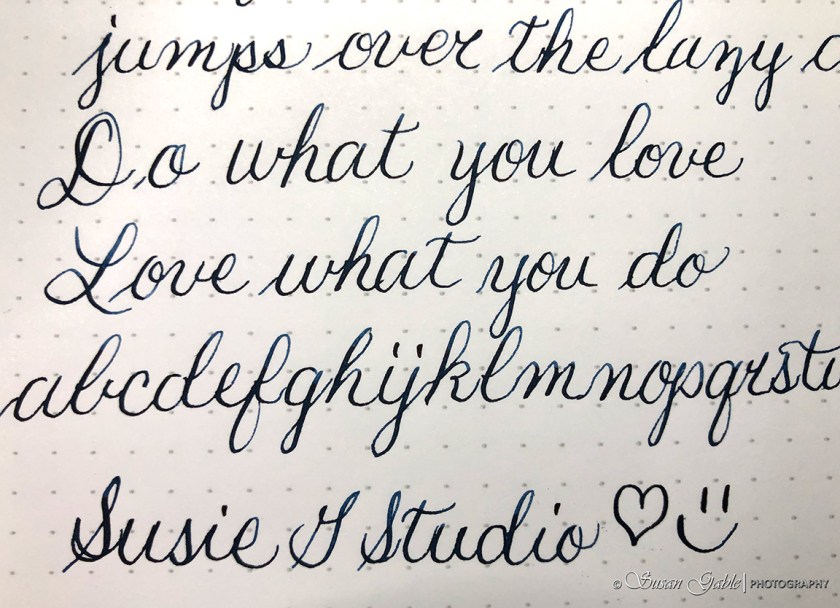 jumps over the lazy
Do what you love
Love what you do
abcdefghijklmnopqrstu
Susie G Studio ♡ :)
© Susan Gable | PHOTOGRAPHY